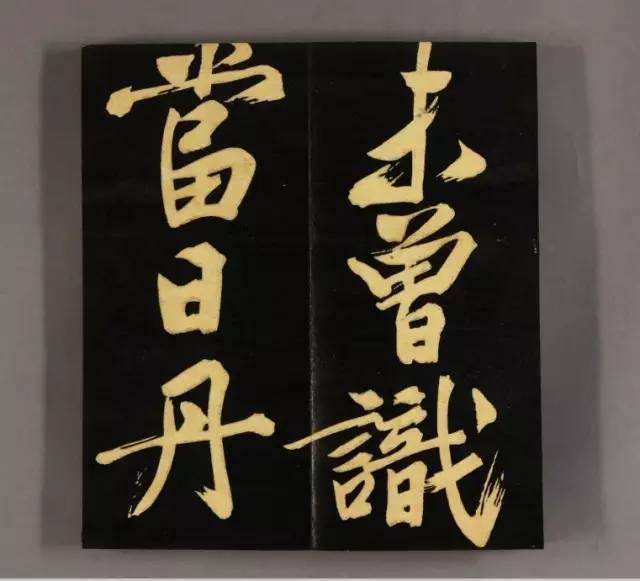 未曾識
當日丹